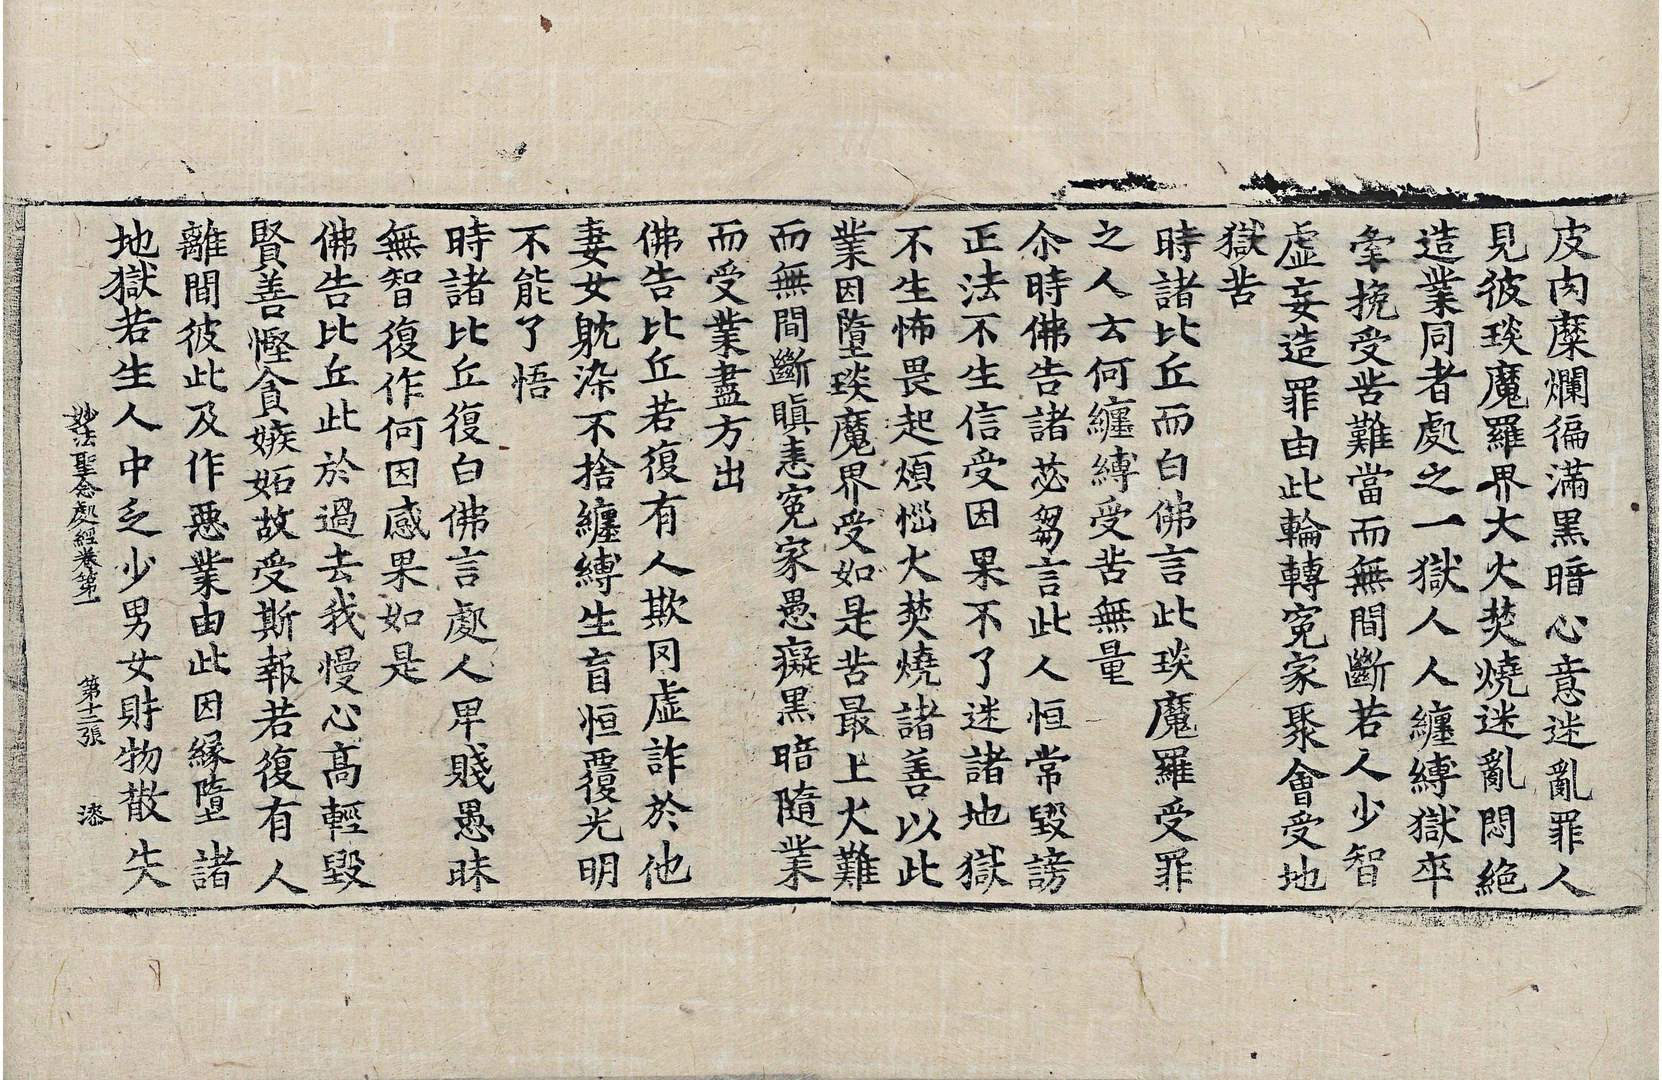 皮肉糜爛徧滿黑暗心意迷亂罪人
見彼琰魔羅界大火焚燒迷亂悶絕
造業同者處之一獄人人纏縛獄卒
牽挽受苦難當而無間斷若人少智
虛妄造罪由此輪轉冤家聚會受地
獄苦
時諸比丘而白佛言此琰魔羅受罪
之人云何纏縛受苦無量
尒時佛告諸苾芻言此人恒常毀謗
正法不生信受因果不了迷諸地獄
不生怖畏起煩惱火焚燒諸善以此
業因墮琰魔界受如是苦最上大難
而無間斷瞋恚冤家愚癡黑暗隨業
而受業盡方出
佛告比丘若復有人欺罔虛詐於他
妻女躭染不捨纏縛生盲恒覆光明
不能了悟
時諸比丘復白佛言處人卑賤愚昧
無智復作何因感果如是
佛告比丘此於過去我慢心高輕毀
賢善慳貪嫉妬故受斯報若復有人
離間彼此及作惡業由此因緣墮諸
地獄若生人中乏少男女財物散失
妙法聖念處經卷第一 第十二張 漆